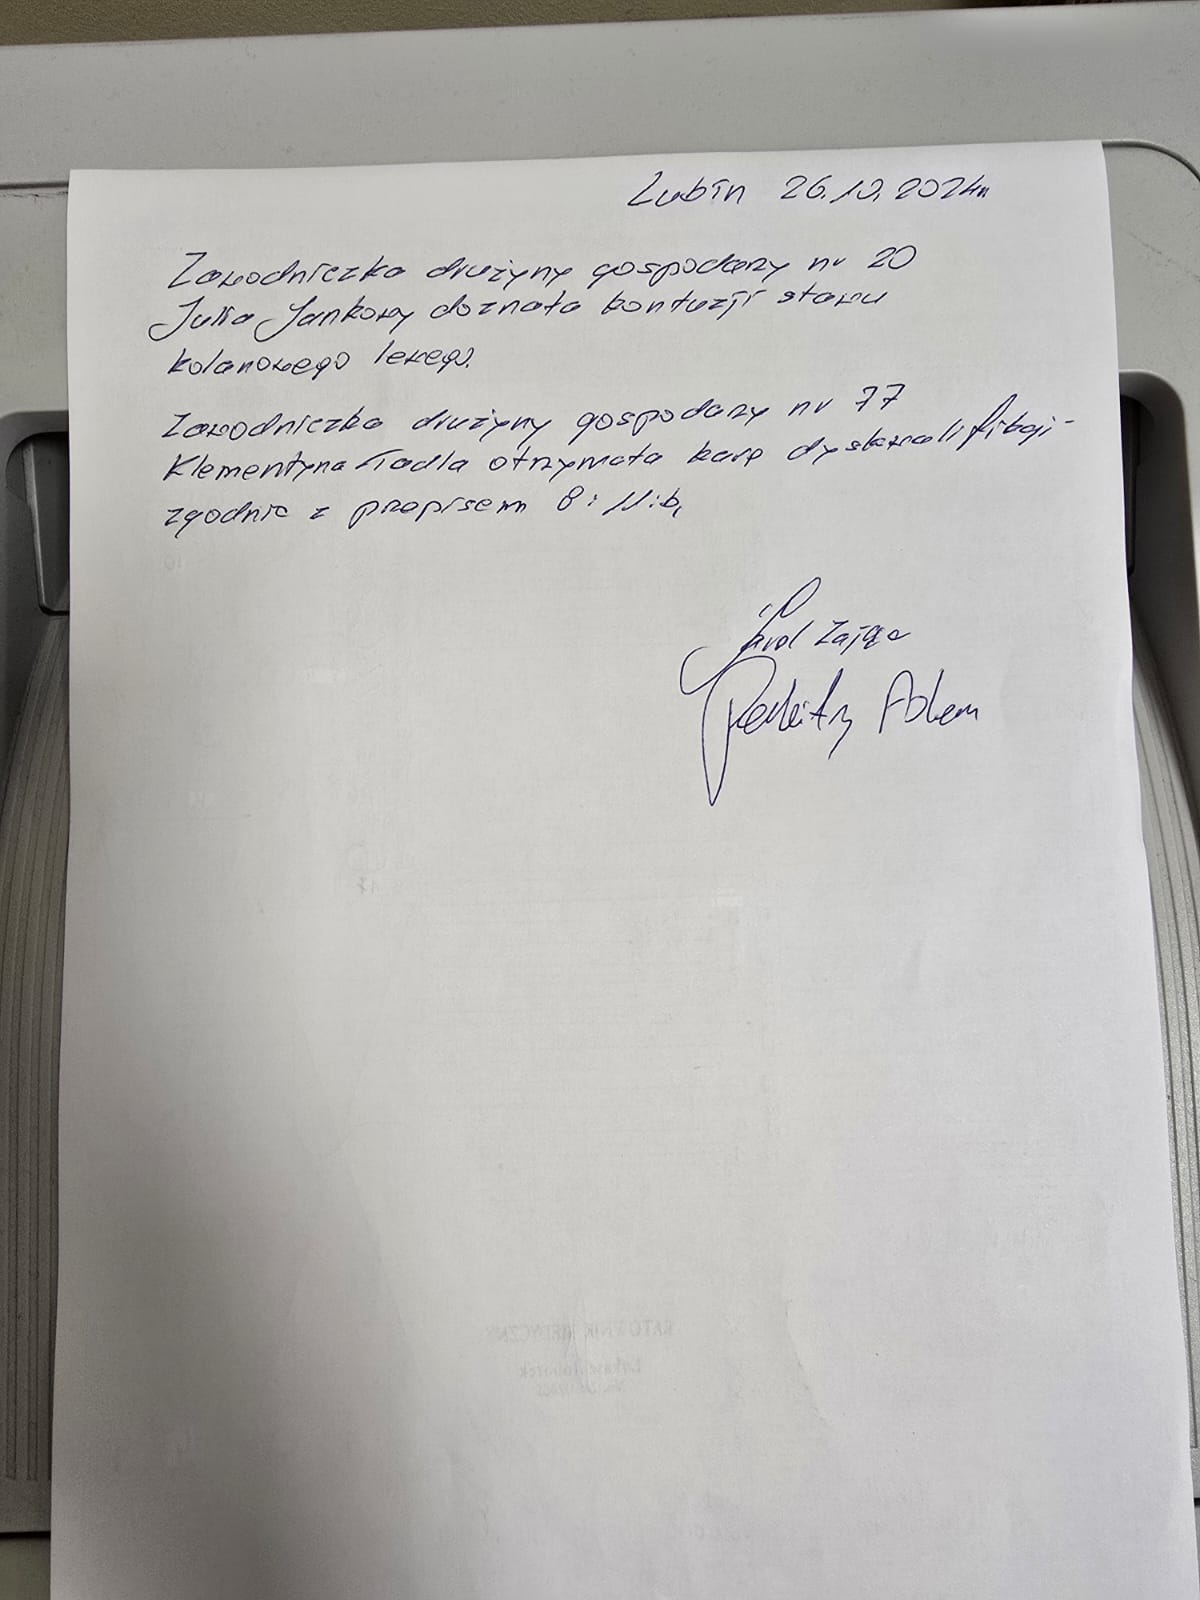 Lubin 26.10.2024r
Zawodniczka drużyny gospodarzy nr 20
Julia Jankowy doznała kontuzji stawu
kolanowego lewego.
Zawodniczka drużyny gospodarzy nr 77
Klementyna otrzymała karę dyskwalifikacji
zgodnie z przepisem 8:11:b,
Karol Zając
Adam
RATOWNIK MEDYCZNY